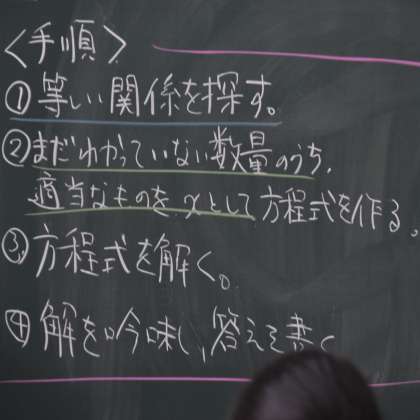 〈手順〉
①等しい関係を探す。
②まだわかっていない数量のうち、
適当なものをxとして方程式を作る。
③方程式を解く。
④解を吟味し、答えを書く